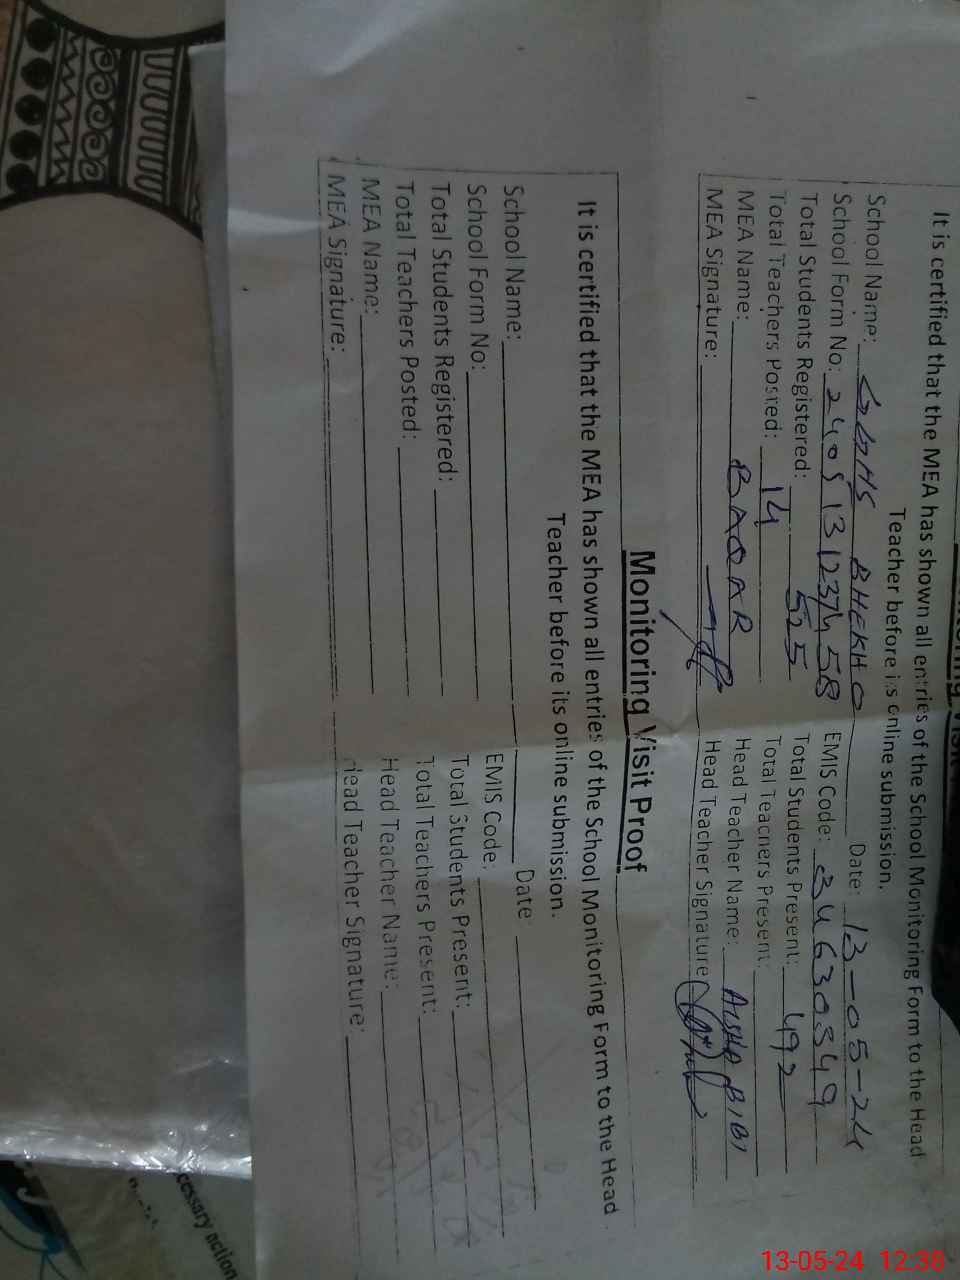 It is certified that the MEA has shown all entries of the School Monitoring Form to the Head
Teacher before its online submission.
School Name: GGHS BHEKHO Date: 13-05-24
School Form No: 2405131237458 EMIS Code: 34630349
Total Students Registered: 525 Total Students Present: 492
Total Teachers Posted: 14 Total Teachers Present:
MEA Name: BAQAR Head Teacher Name: AISHA BIBI
MEA Signature: Head Teacher Signature
Monitoring Visit Proof
It is certified that the MEA has shown all entries of the School Monitoring Form to the Head
Teacher before its online submission.
School Name: Date
School Form No: EMIS Code:
Total Students Registered: Total Students Present:
Total Teachers Posted: Total Teachers Present:
MEA Name: Head Teacher Name:
MEA Signature: Head Teacher Signature:
cessary action
13-05-24 12:38